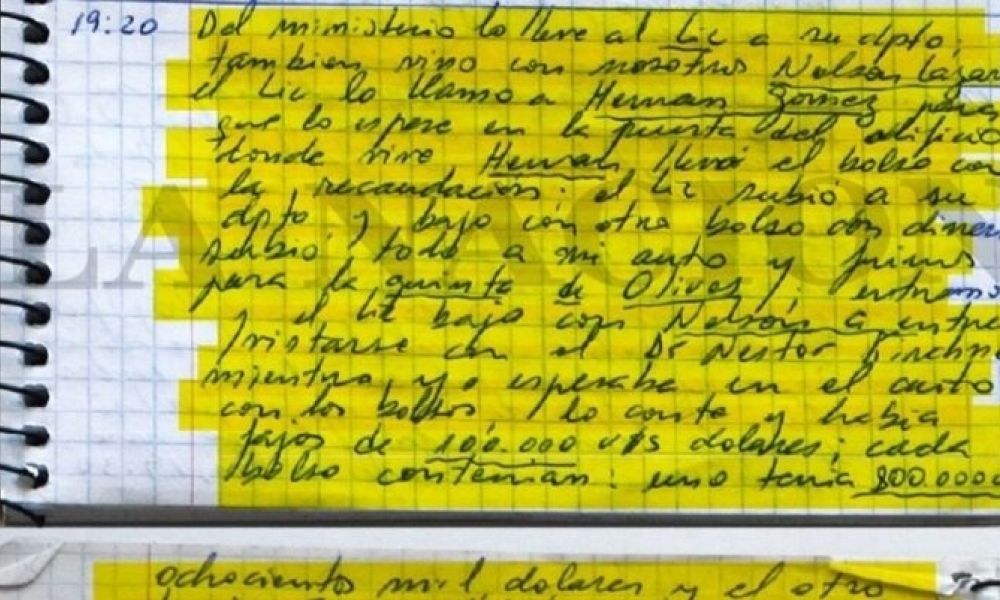 19:20 Del ministerio lo lleve al Lic a su dpto;
tambien vino con nosotros Nelson Lazar
el Lic lo llamo a Hernan Gomez para
que lo espere en la puerta del edificio
donde vive, Hernan llevó el bolso con
la recaudación; el Lic subió a su
dpto y bajo con otro bolso con dinero
subió todo a mi auto y fuimos
para la quinta de Olivos; entramos
y el Lic bajo con Nelson a entre
vistarse con el Dr Nestor Kirchn
mientras yo esperaba en el auto
con los bolsos, lo conte y habia
fajos de 100.000 U$S dolares; cada
bolso contenian: uno tenia 800.000
ochocientos mil dolares y el otro
LA NACION